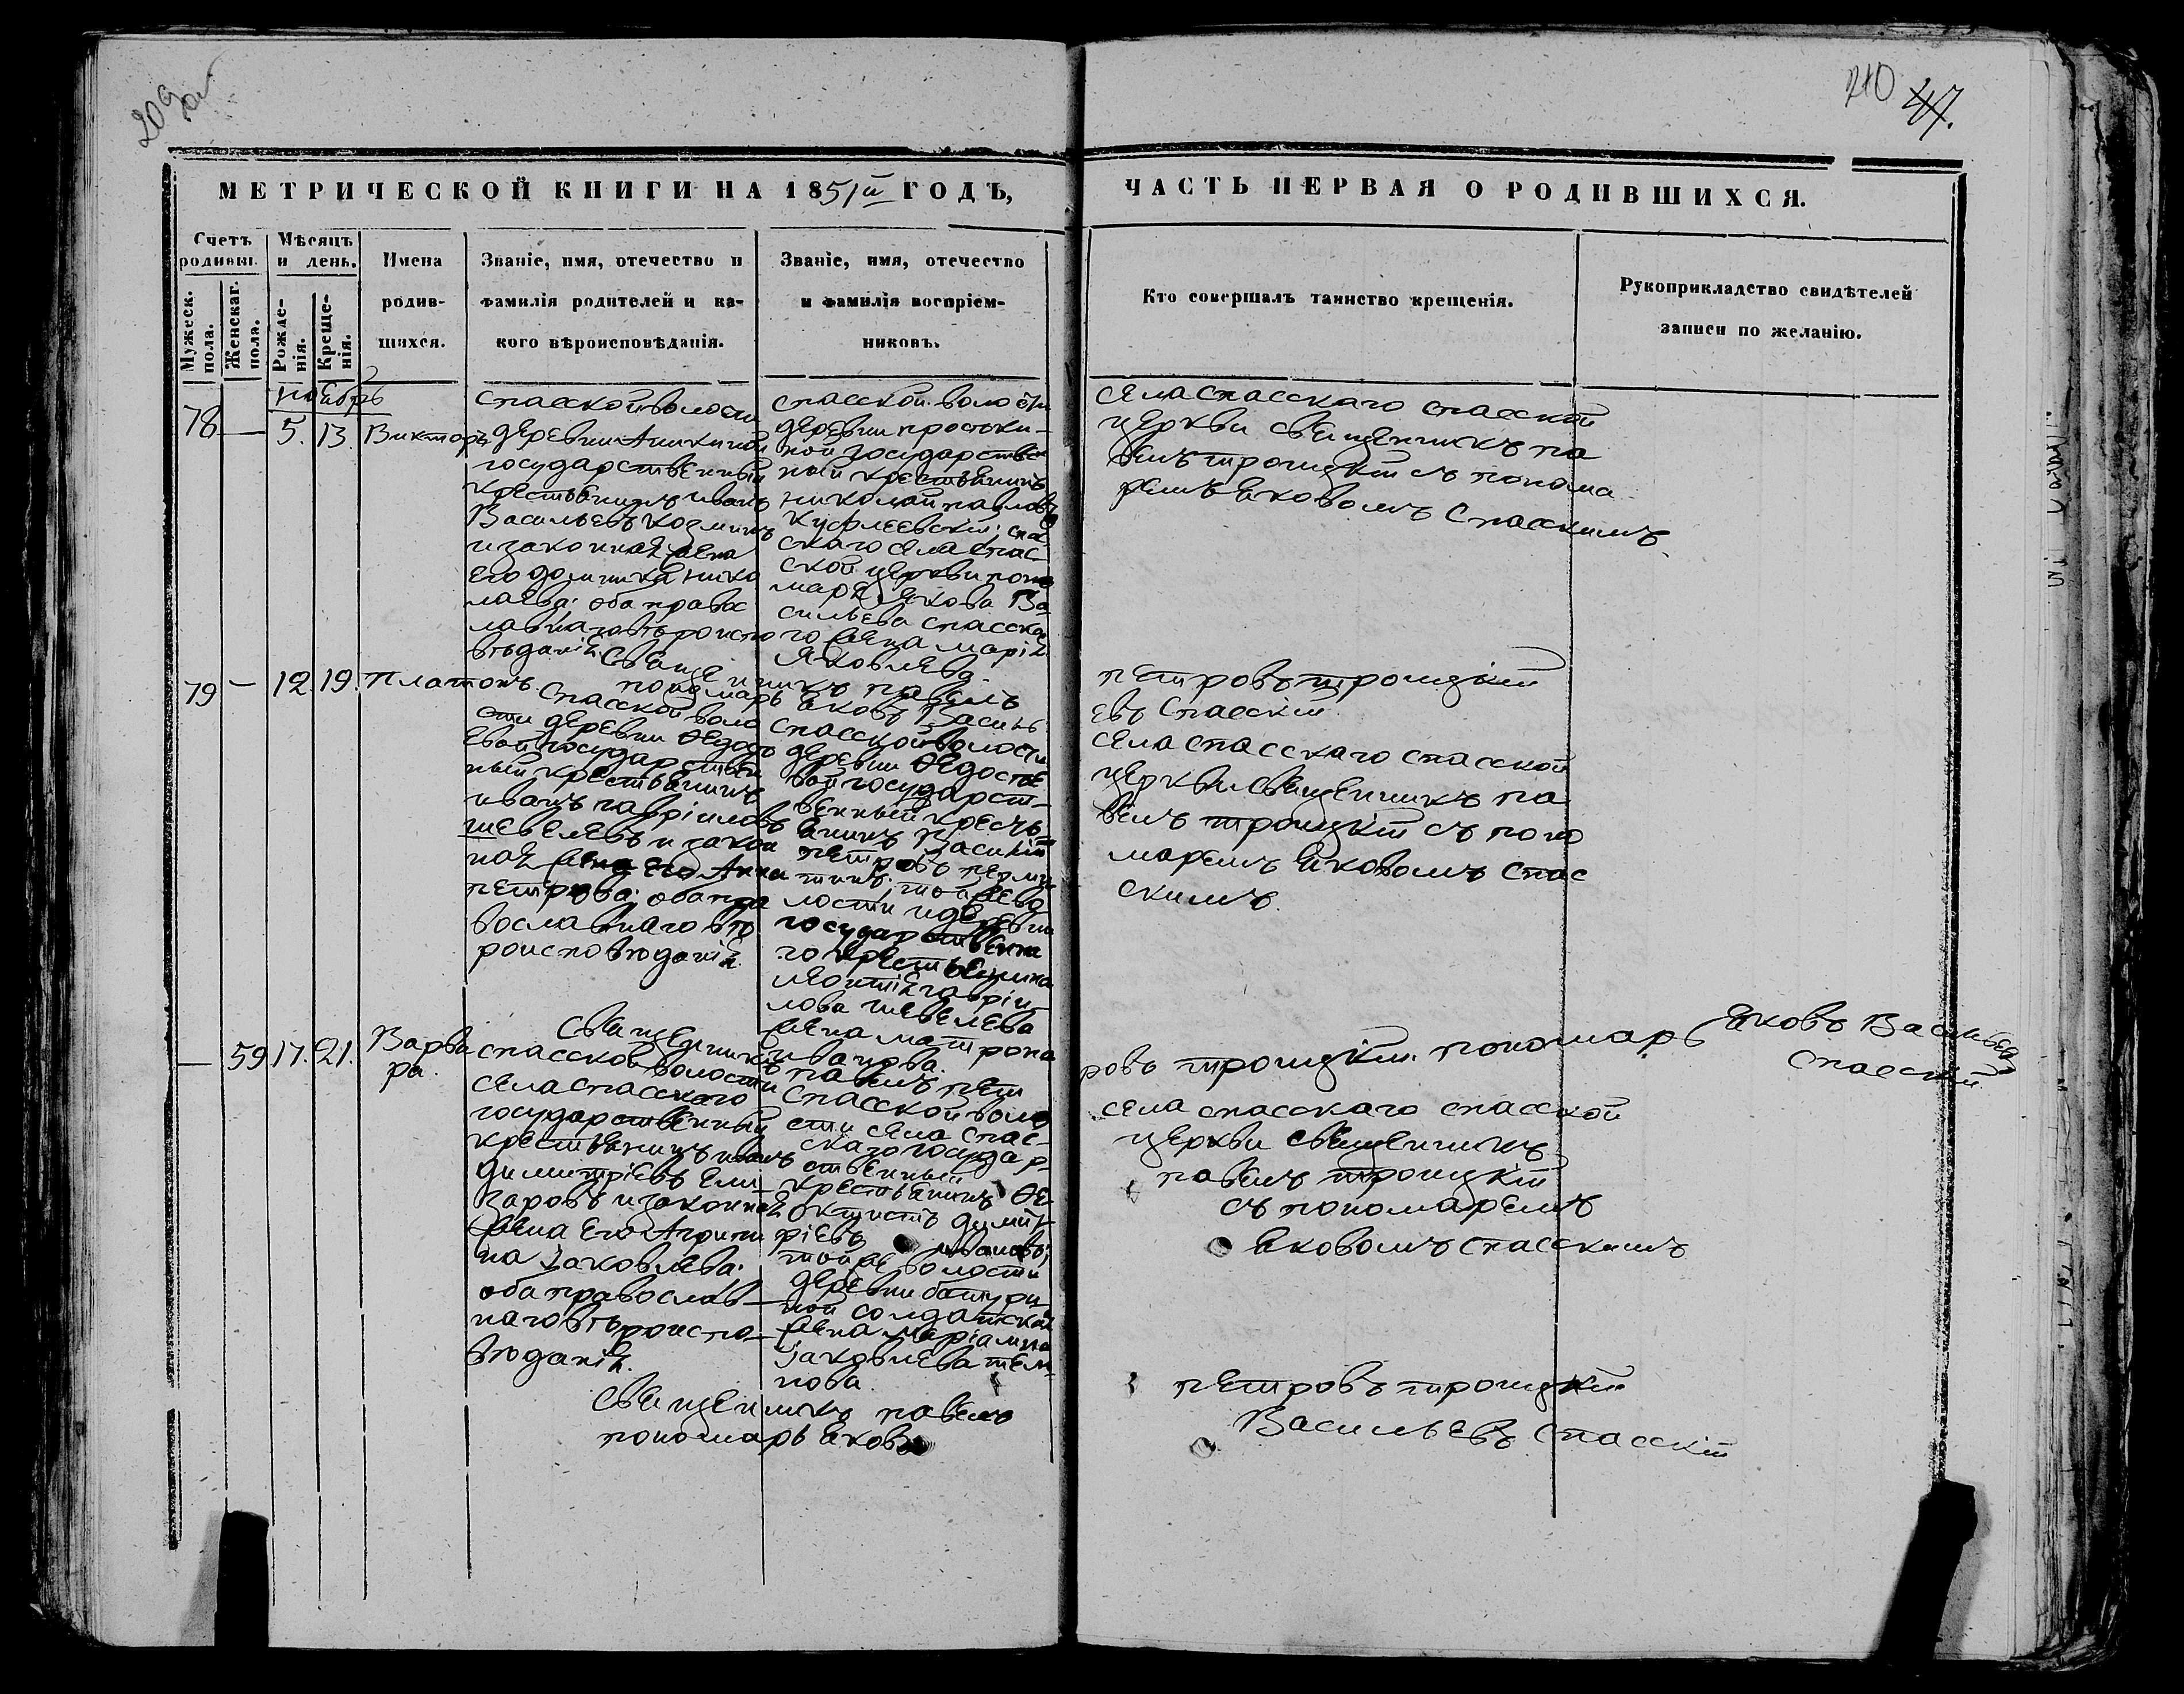 209 об
210 47.
МЕТРИЧЕСКОЙ КНИГИ НА 1851й ГОДЪ,
ЧАСТЬ ПЕРВАЯ О РОДИВШИХСЯ.
Счетъ родивш.
Мужеск. пола.
Женскаг. пола.
Мѣсяцъ и день.
Рожденія.
Крещенія.
Имена
родив-
шихся.
Званіе, имя, отечество и
фамилія родителей и ка-
кого вѣроисповѣданія.
Званіе, имя, отечество
и фамилія воспріем-
никовъ.
Кто совершалъ таинство крещенія.
Рукоприкладство свидѣтелей
записи по желанію.
ноябрь
78 — 5. 13. Викторъ
спасской волости
деревни Аникиной
государственный
крестьянинъ иванъ
Васильевъ козминъ
и законная жена
его домника нико
лаева; оба правос
лавнаго вѣроиспо
вѣданія.
спасской волости
деревни простоки-
ной государствен
ный крестьянинъ
николай павловъ
скаго села спас
ской церкви поно
маря Якова Ва
сильева спасска
го жена марія
Яковлева.
села спасскаго спасской
церкви священникъ па
велъ троицкій съ понома
ремъ яковомъ Спасскимъ.
Священникъ павелъ петровъ троицкій
пономарь яковъ Васильевъ Спасскій.
79 — 12. 19. Платонъ
Спасской воло
сти деревни Ѳедосѣ
евой государствен
ный крестьянинъ
иванъ гавріиловъ
шевелевъ и закон
ная жена его Анна
петрова; оба пра
вославнаго вѣ
роисповѣданія.
спасской волости
деревни Ѳедосѣе
вой государст-
венный кресть
янинъ Василій
петровъ
тинъ; той же во
лости и деревни
государственна
го крестьянина
леонтія гавріи
лова шевелева
жена матрона
иванова.
села спасскаго спасской
церкви священникъ па
велъ троицкій съ поно
маремъ яковомъ спас
скимъ.
Священникъ павелъ петровъ троицкій. пономарь Яковъ Васильевъ
спасскій.
— 59 17. 21. Варва
ра.
спасской волости
села спасскаго
государственный
крестьянинъ иванъ
димитріевъ ели-
заровъ и законная
жена его Агрипи
на Іаковлева.
оба православ-
наго вѣроиспо-
вѣданія.
Спасской воло
сти села спас-
скаго государ-
ственный
крестьянинъ Ѳе-
октистъ димит-
ріевъ ивановъ;
той же волости
деревни батури
ной солдатская
жена маріамна
Іаковлева тем-
нова.
села спасскаго спасской
церкви священникъ
павелъ троицкій
съ пономаремъ
яковомъ спасскимъ
Священникъ павелъ петровъ троицкій
пономарь яковъ Васильевъ спасскій